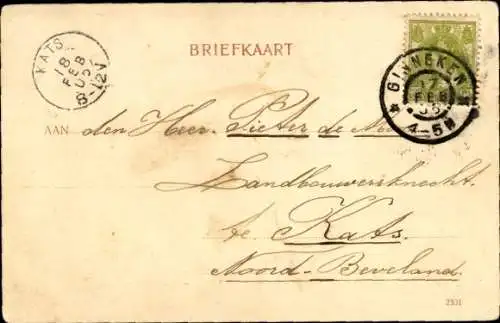 KATS
18
FEB
05
8-12V
BRIEFKAART
GINNEKEN
17
FEB
05
4-5N
AAN den Heer Pieter de
Landbouwersknecht.
te Kats.
Noord-Beveland.
2531